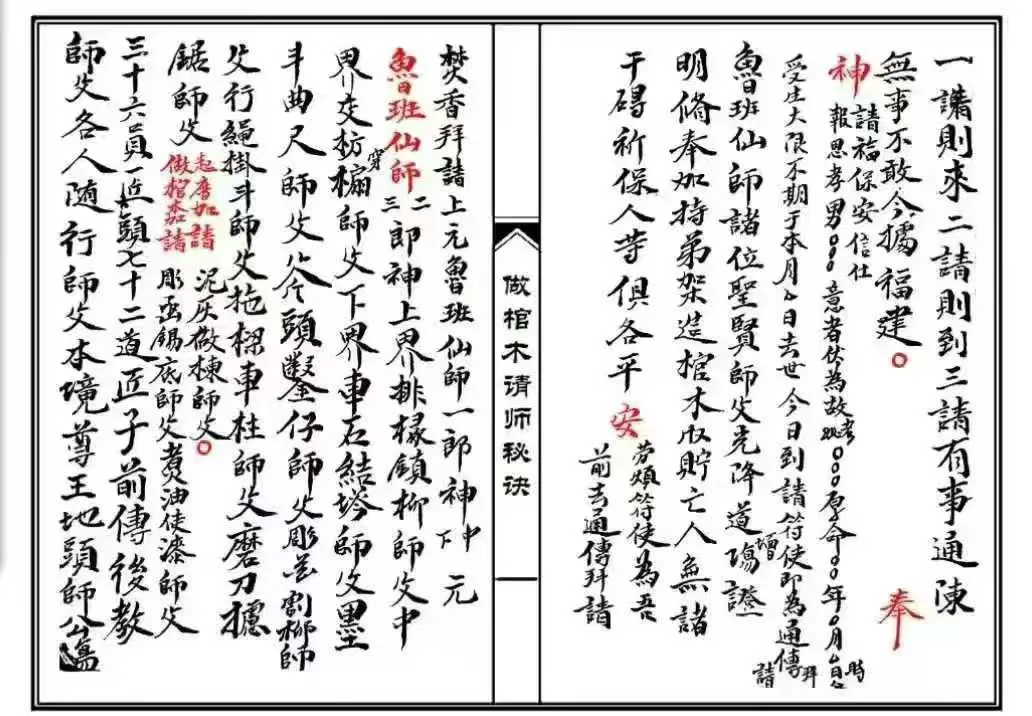 一請則來二請則到三請有事通陳
無事不敢今據福建〇 奉
神 請福保安信仕
報恩孝男〇〇〇意者伏為故考妣〇〇〇原命〇〇年〇月〇日〇時
受生大限不期于本月〇日去世今日到請符使即為通傳拜請
魯班仙師諸位聖賢師父光降道場壇證
明修奉加持弟架造棺木収貯亡人無諸
干碍祈保人等俱各平安
劳煩符使為吾
前去通傳拜請
做棺木请师秘诀
焚香拜請上元魯班仙師一郎神中元
魯班仙師二郎神下
三郎神上界排椽鎖柳師父中
界交枋穿槅師父下界車石結塔師父墨
斗曲尺師父斧頭鑿仔師父彫花割柳師
父行繩掛斗師父拖樑車柱師父磨刀攄
鋸師父 起厝加請
做棺木請
泥灰
棟師父〇
彫
錫底師父煑油使漆師父
三十六員匠頭七十二道匠子前傳後教
師父各人随行師父本境尊王地頭師公